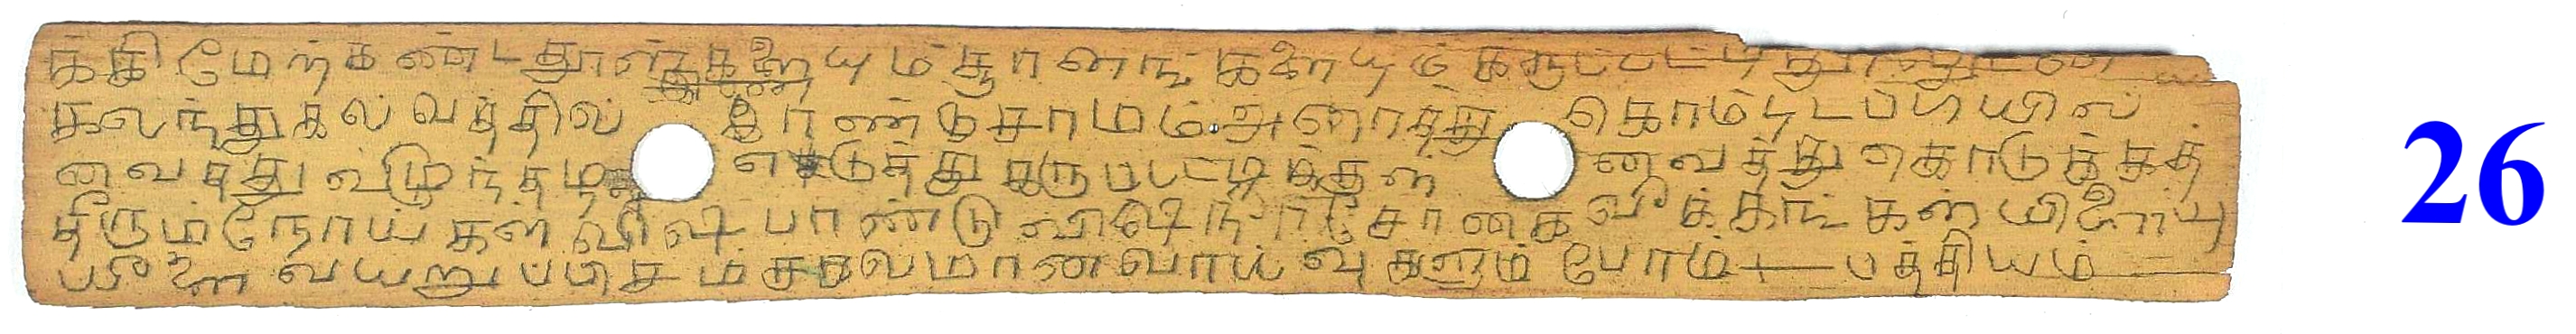 க்கி மேற்கண்ட தூள்களையும் சூரணங்களையும் கருப்பட்டி
கலந்து கல்வத்தில் இரண்டு சாமம் அரைத்து கொம்புடப்பியில்
வைத்து விழுந்த எடுத்து கருப்பட்டிக்குள் வைத்து கொடுக்கத்
தீரும் நோய்கள் விஷபாண்டு விஷநீர் சோகை வீக்கங்கள் யிளைய்பு
யீளை வயறுப்பிசம் சகலமான வாய்வுகளும் போம் பத்தியம்
26